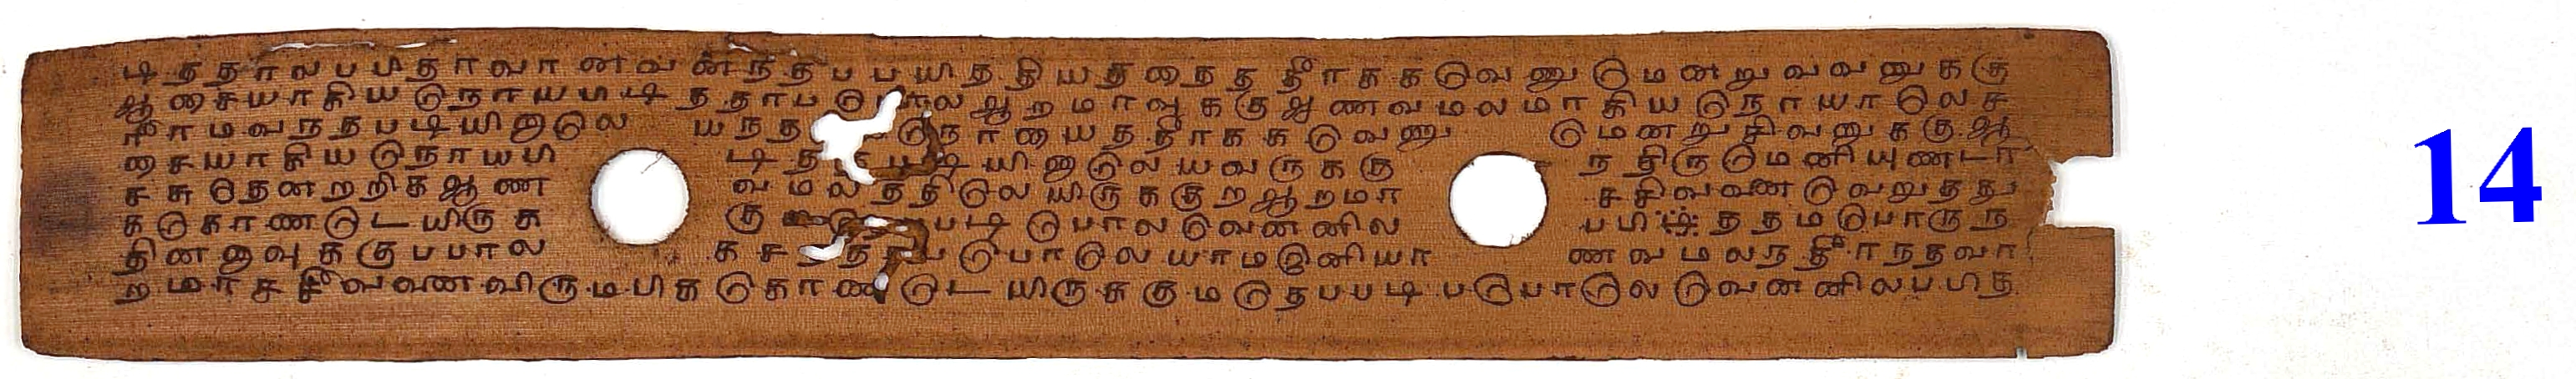 டிததாலபிதாவானவனநதபபயிததியததைததீரககவேணுமெனறுவவனுககு
ஆசையாகியநோயபிடிததாப லஆறமாவுககுஆணவமலமாகியநோயாலெச
ராமவநதபடியினாலெ யநத நோயைததீரககவேணு மெனறுசிவனுககுஆ
சையாகியநோயபி டித படியினாலெயவருககு நதிருமெனியுணடா
சசுதெனறறிகஆண வமலததிலெயிருககுறஆறமா சசிவவணவெறுதது
ககொணடெயிருக கு படிபோலவெனனில பிததமபொருந
தினனுவுககுபபால கச படுபாலெயாமஇனியா ணவமலநதீரநதவா
றமாசசிவவணவிருமபிககொணடெயிருககுமதெபபடிபடுபாலெவெனனிலபித